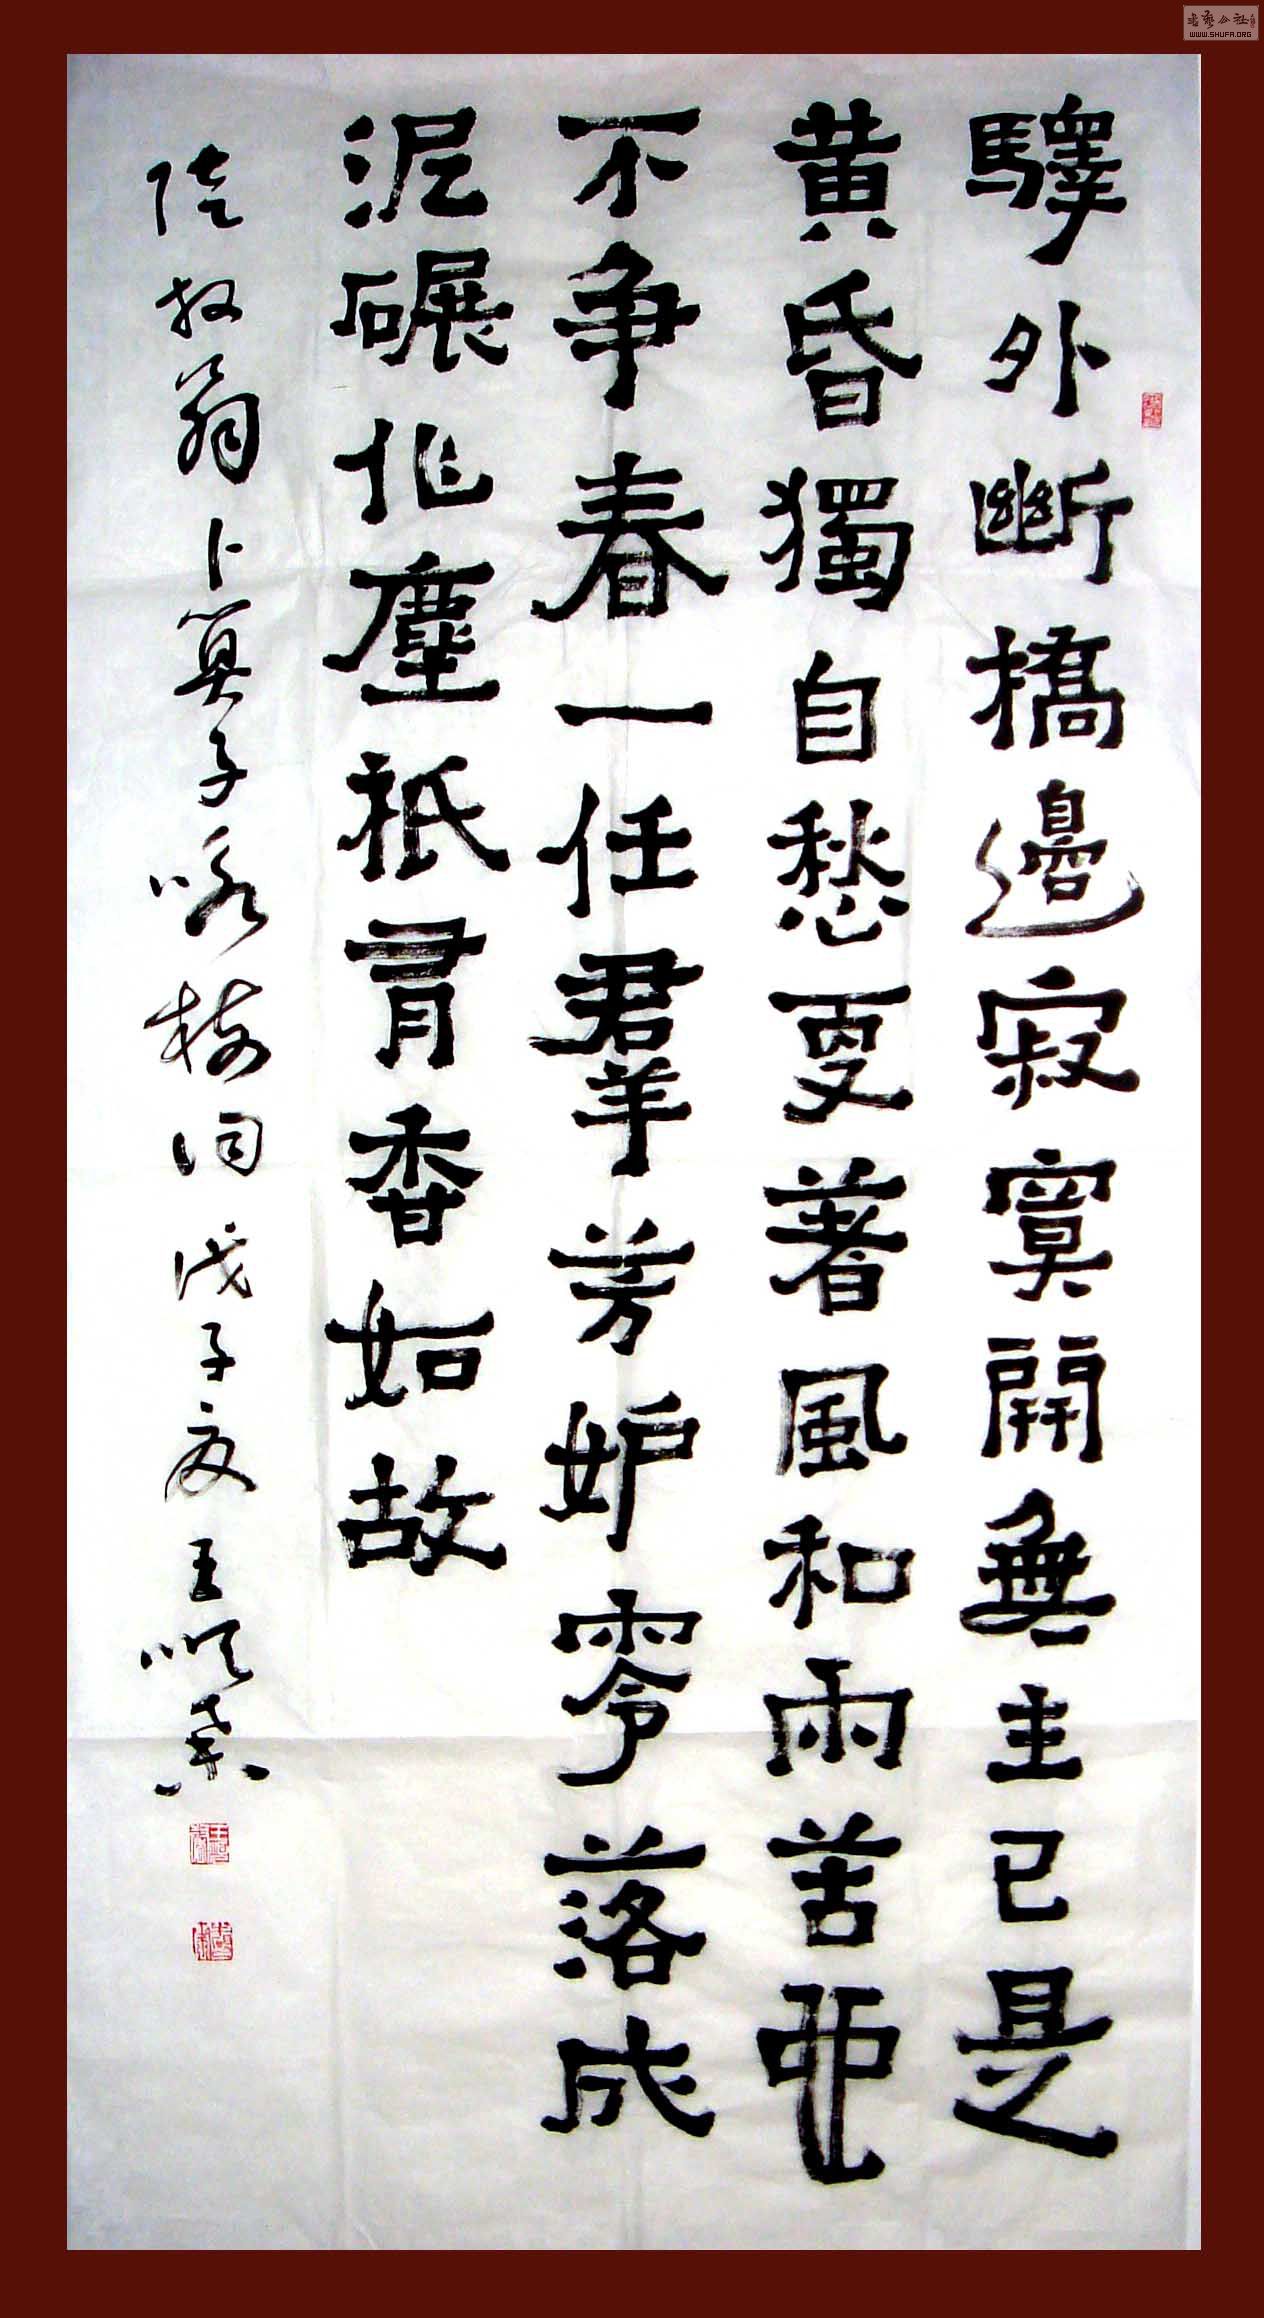 驛外斷橋邊寂寞開無主已是
黄昏獨自愁更著風和雨苦
不爭春一任羣芳妒零落成
泥碾作塵祇有香如故
陸放翁卜算子咏梅詞戊子夏王
書藝公社
WWW.SHUFA.ORG